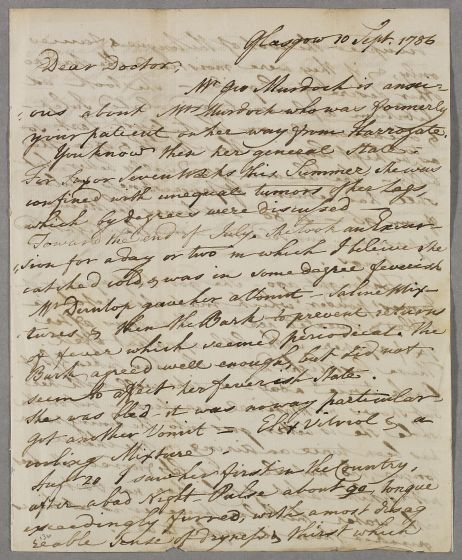 Glasgow 10 Sept. 1786
Dear Doctor,
Mr Geo Murdoch is anxi-
ous about Mrs Murdoch who was formerly
your patient on her way from Harrogate.
You know then her general State.
For Six or Seven Weeks this Summer she was
confined with unequal tumors of her Legs,
which by degrees were discussed —
Toward the end of July she took an Excur-
sion for a day or two in which I believe she
catched cold, & was in some degree feverish
Mr Dunlop gave her a Vomit — Saline Mix
tures & then the Bark to prevent returns
of fever which seemed periodical. The
Bark agreed well enough, but did not
seem to affect her feverish State
She was bled it was noway particular
got another Vomit — Elix Vitriol & a
cooling Mixture.
Augt 20 I saw her first in the Country,
after a bad Night — Pulse about 90 tongue
exceedingly furred, with a most disag
reeable sense of dryness, & thirst which